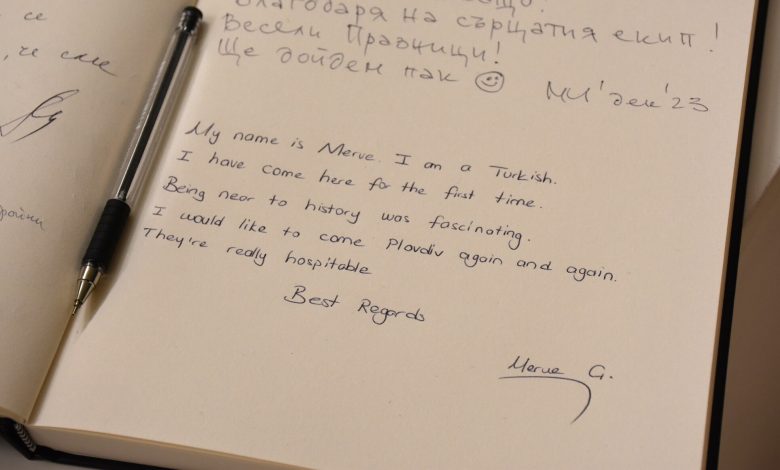 се
, че сме
Благодаря на сърцатия екип!
Весели Празници!
Ще дойдем пак
МИ'дек'23
My name is Merve. I am a Turkish.
I have come here for the first time.
Being near to history was fascinating.
I would like to come Plovdiv again and again.
They're really hospitable
Best Regards
Merve G.